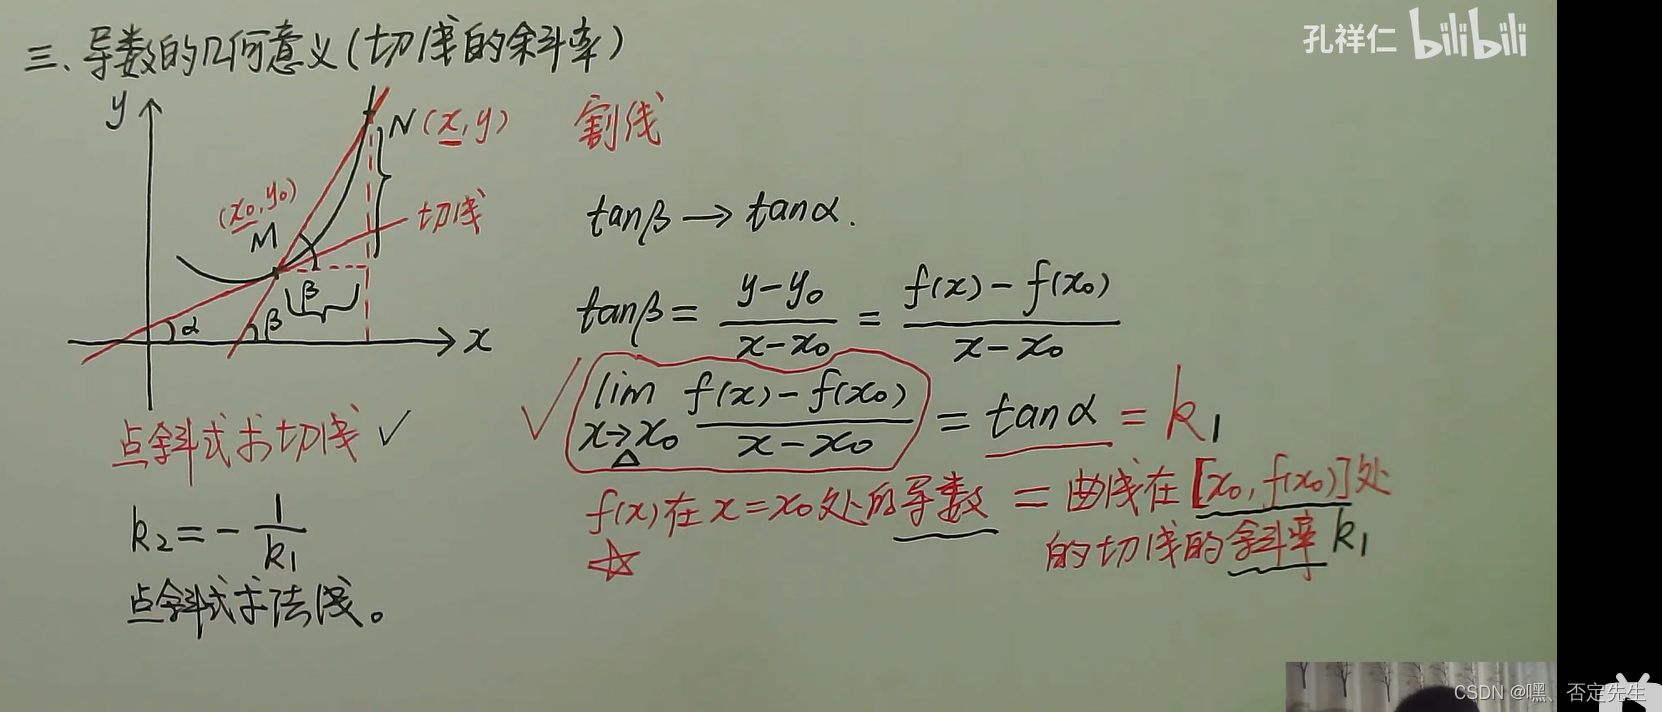 三、导数的几何意义(切线的斜率)
孔祥仁 bilibili
y
N(x,y)
割线
(x₀,y₀)
M
切线
tanβ→tanα.
β
α
β
x
tanβ= y-y₀ / x-x₀ = f(x)-f(x₀) / x-x₀
lim x→x₀ f(x)-f(x₀) / x-x₀ = tanα = k₁
△
点斜式求切线 ✓
f(x)在x=x₀处的导数 = 曲线在[x₀,f(x₀)]处
的切线的斜率k₁
k₂=- 1/k₁
点斜式求法线。
CSDN @嘿、否定先生